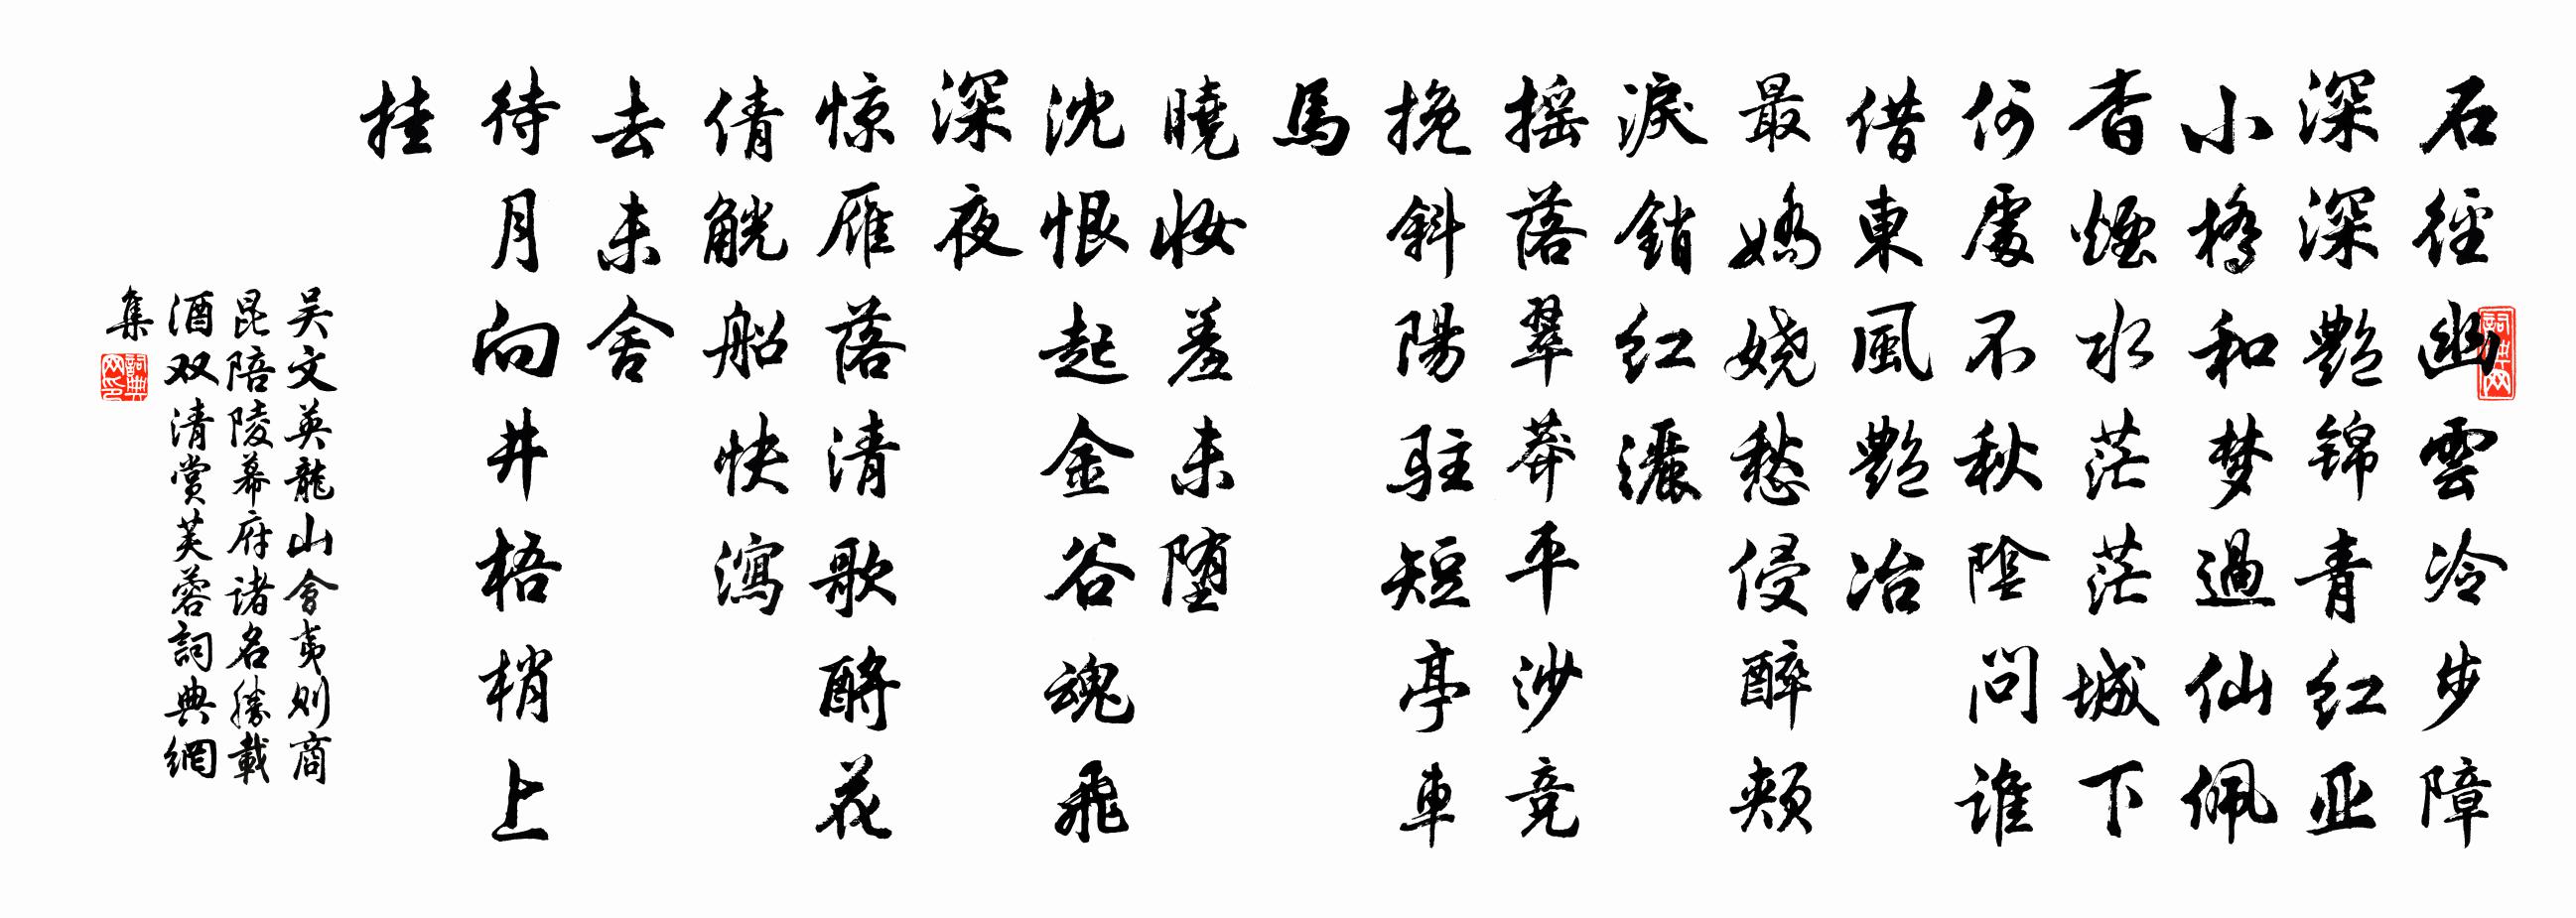 石徑幽雲冷步障
深深艷锦青红亚
小橋和梦過仙佩
香煙水茫茫城下
何處不秋陰問誰
借東風艷冶
最嬌娆愁侵醉頰
淚銷红灑
摇落翠莽平沙竞
挽斜陽駐短亭車
馬
曉妆羞未堕
沈恨起金谷魂飛
深夜
惊雁落清歌酹花
倩觥船快瀉
去未舍
待月向井梧梢上
挂
吴文英龍山會夷则商
昆陪陵幕府诸名勝載
酒双清赏芙蓉詞典網
集
詞典网
詞典网印